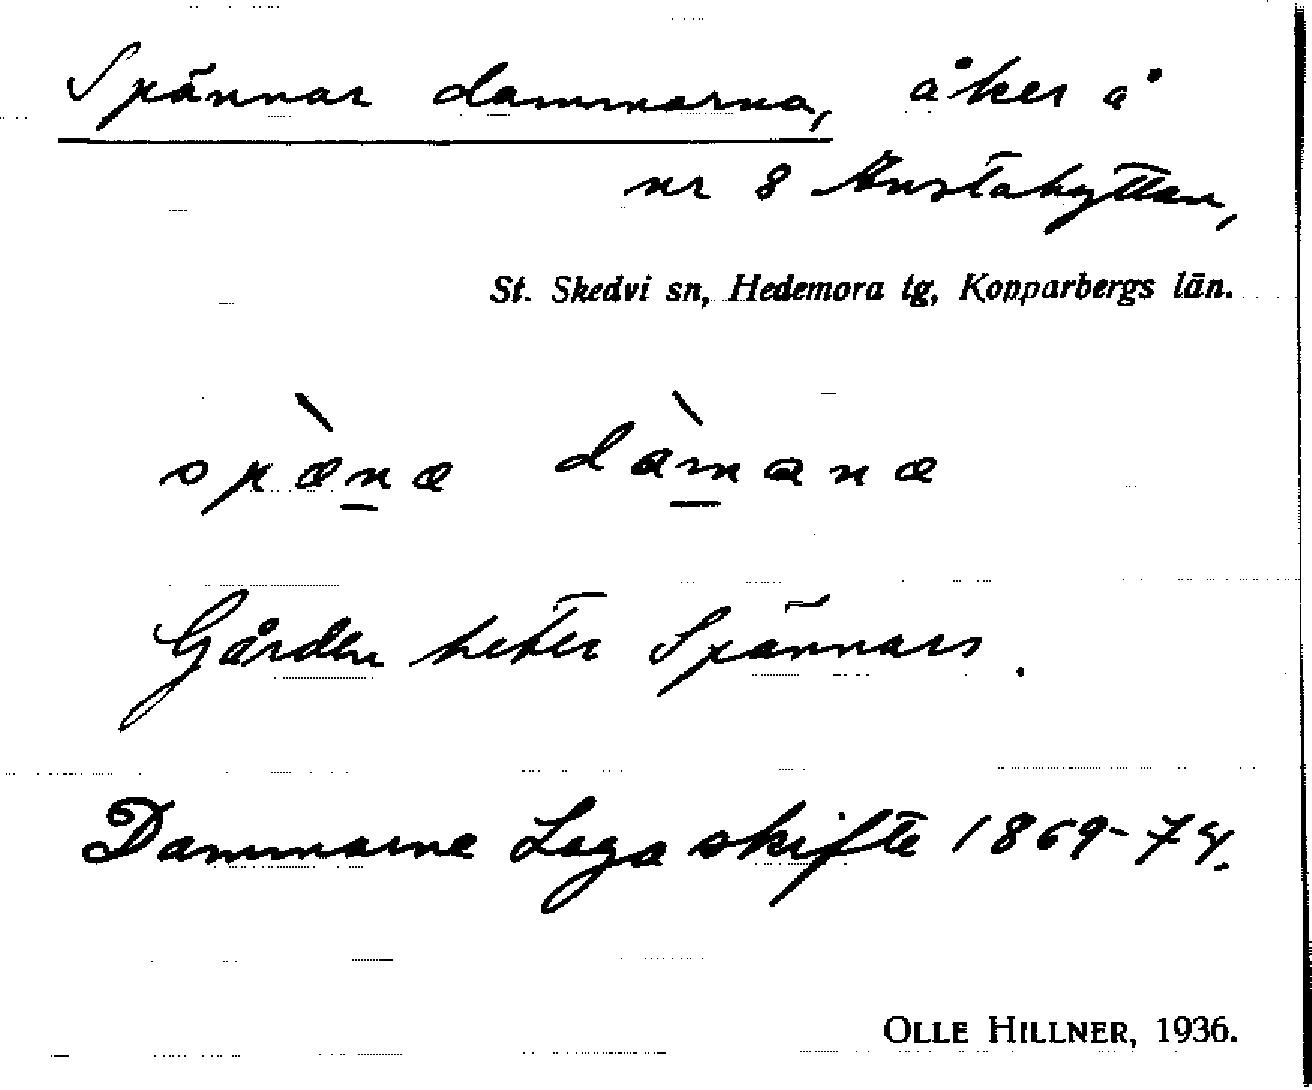 Spännar dammarna, åker å
nr 8 Anstahyttan,
St. Skedvi sn, Hedemora tg, Kopparbergs län.
spæ̀næ dàmanæ
Gården heter Spännars.
Dammarne Laga skifte 1869-74.
OLLE HILLNER, 1936.